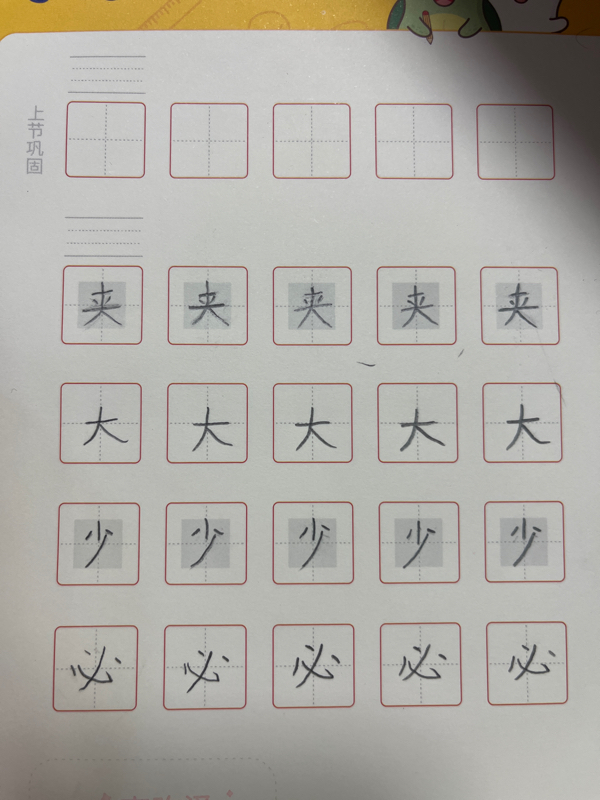 上节巩固
夹 夹 夹 夹 夹
大 大 大 大 大
少 少 少 少 少
必 必 必 必 必